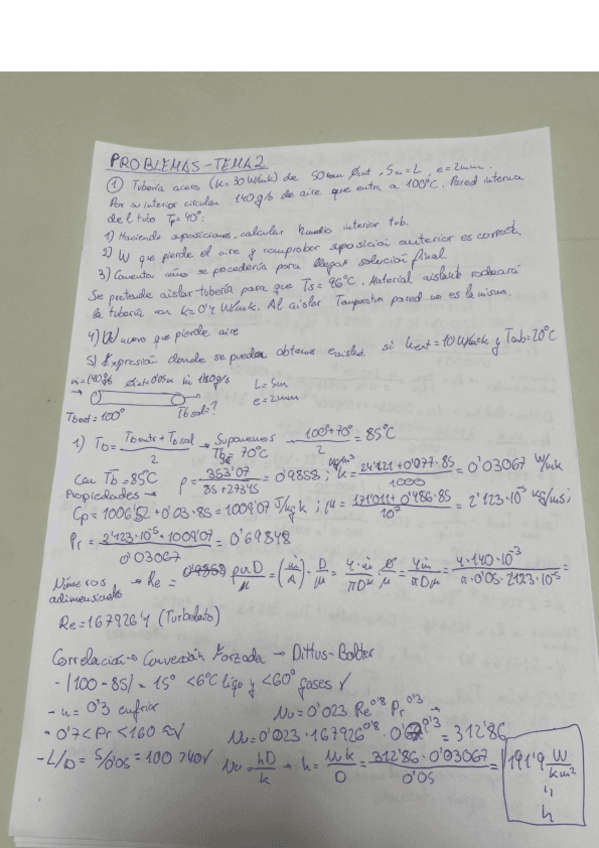 PROBLEMAS - TEMA 2
① Tubería acero (k=30 W/mk) de 50mm Øint, 5m=L, e=2mm.
Por su interior circulan 140 g/s de aire que entra a 100°C. Pared interna
del tubo Tp=40°.
1) Haciendo suposiciones, calcular h medio interior tub.
2) W que pierde el aire y comprobar suposición anterior es correcta
3) Comentar cómo se procedería para llegar solución final.
Se pretende aislar tubería para que Ts=96°C. Material aislante rodeará
la tubería con k=0'4 W/mk. Al aislar Temperatura pared no es la misma.
4) W nuevo que pierde aire
5) Expresión donde se pueda obtener eaislat si hext=10 W/m²k y Tamb=20°C
Øint=0'05m L=5m
e=2mm
Tbent=100° Tbsal=?
1) Tb = Tbentr + Tbsal / 2 → Suponemos Tbs 70°C 100°+70° / 2 = 85°C
Con Tb=85°C ρ = 353'07 / 85+273'15 = 0'9858 kg/m³; k = 24'121+0'077·85 / 1000 = 0'03067 W/mk
Propiedades →
Cp = 1006'52 + 0'03·85 = 1009'07 J/kgk; μ = 171'011+0'486·85 / 10⁷ = 2'123·10⁻⁵ kg/ms;
Pr = 2'123·10⁻⁵·1009'07 / 0'03067 = 0'69848
Números adimensionales → Re = ρuD / μ = (ṁ/A)·D/μ = 4·ṁ / πD² · D/μ = 4ṁ / πDμ = 4·140·10⁻³ / π·0'05·2'123·10⁻⁵ =
Re = 167926'4 (Turbulato)
Correlación → Convección Forzada → Dittus-Bolter
- |100-85| = 15° <6°C líqo y <60° gases ✓
- n = 0'3 enfriar Nu = 0'023 Re⁰'⁸ Pr⁰'³ →
- 0'7<Pr<160 ≈✓ Nu = 0'023·167926⁰'⁸·0'7⁰'³ = 312'86
- L/D = 5/0'05 = 100 >40✓ Nu = hD/k → h = Nu k / D = 312'86·0'03067 / 0'05 = 191'9 W/km²
"
h